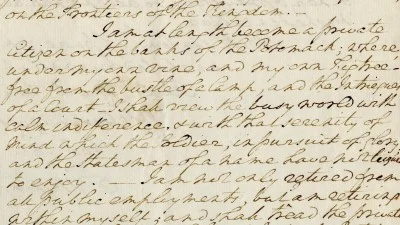 on the Frontiers of the Kingdom.—
I am at length become a private
citizen on the banks of the Potomack; where
under my own vine, and my own Fig tree—
free from the bustle of a camp, and the intrigues
of a Court I shall view the busy world with
calm indifference, & with that serenity of
mind which the Soldier, in pursuit of glory
and the Statesman of a name have not leizure
to enjoy. — I am not only retired from
all public employments, but am retiring
within myself; and shall tread the private